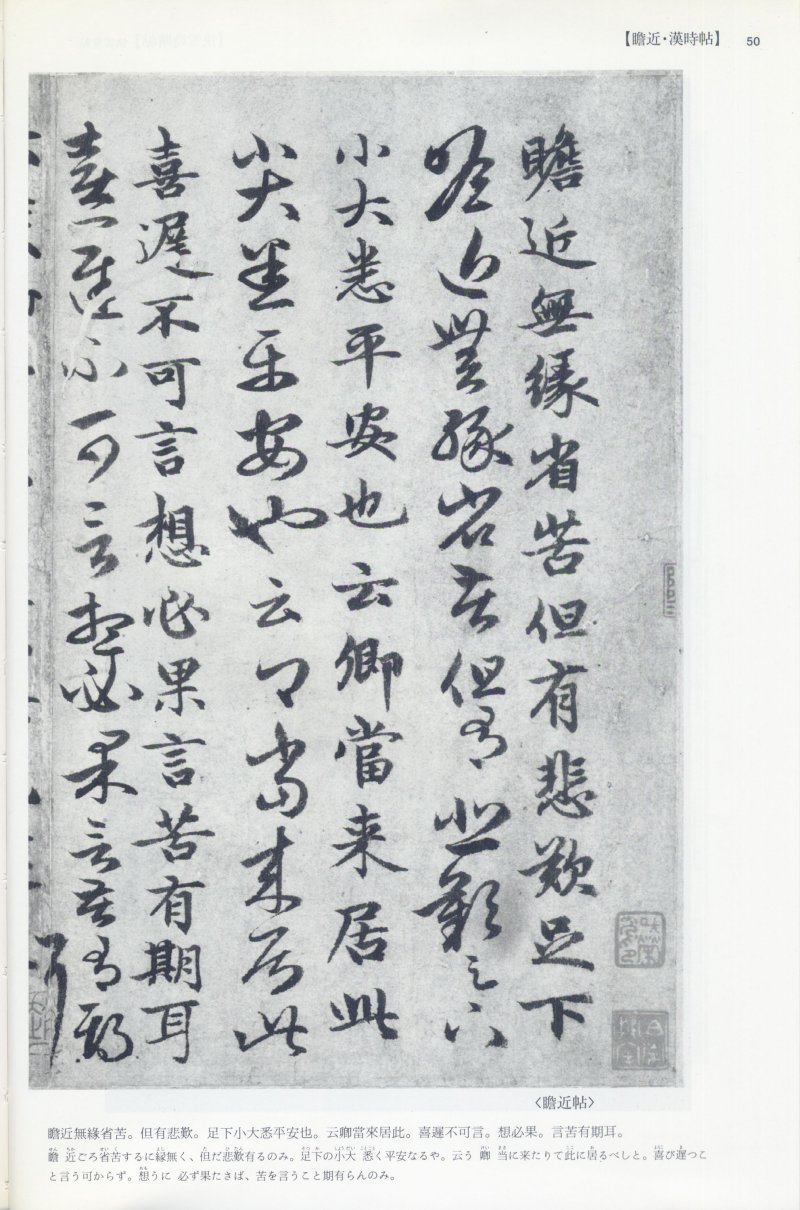 【瞻近・漢時帖】 50
瞻近無緣省苦但有悲歎足下
瞻近無緣省苦但有悲歎足下
小大悉平安也云卿當来居此
小大悉平安也云卿當来居此
喜遲不可言想必果言苦有期耳
喜遲不可言想必果言苦有期
耳
〈瞻近帖〉
瞻近無緣省苦。但有悲歎。足下小大悉平安也。云卿當來居此。喜遲不可言。想必果。言苦有期耳。
瞻近ごろ省苦するに縁無く、但だ悲歎有るのみ。足下の小大悉く平安なるや。云う卿当に来たりて此に居るべしと。喜び遲つこ
と言う可からず。想うに必ず果たさば、苦を言うこと期有らんのみ。